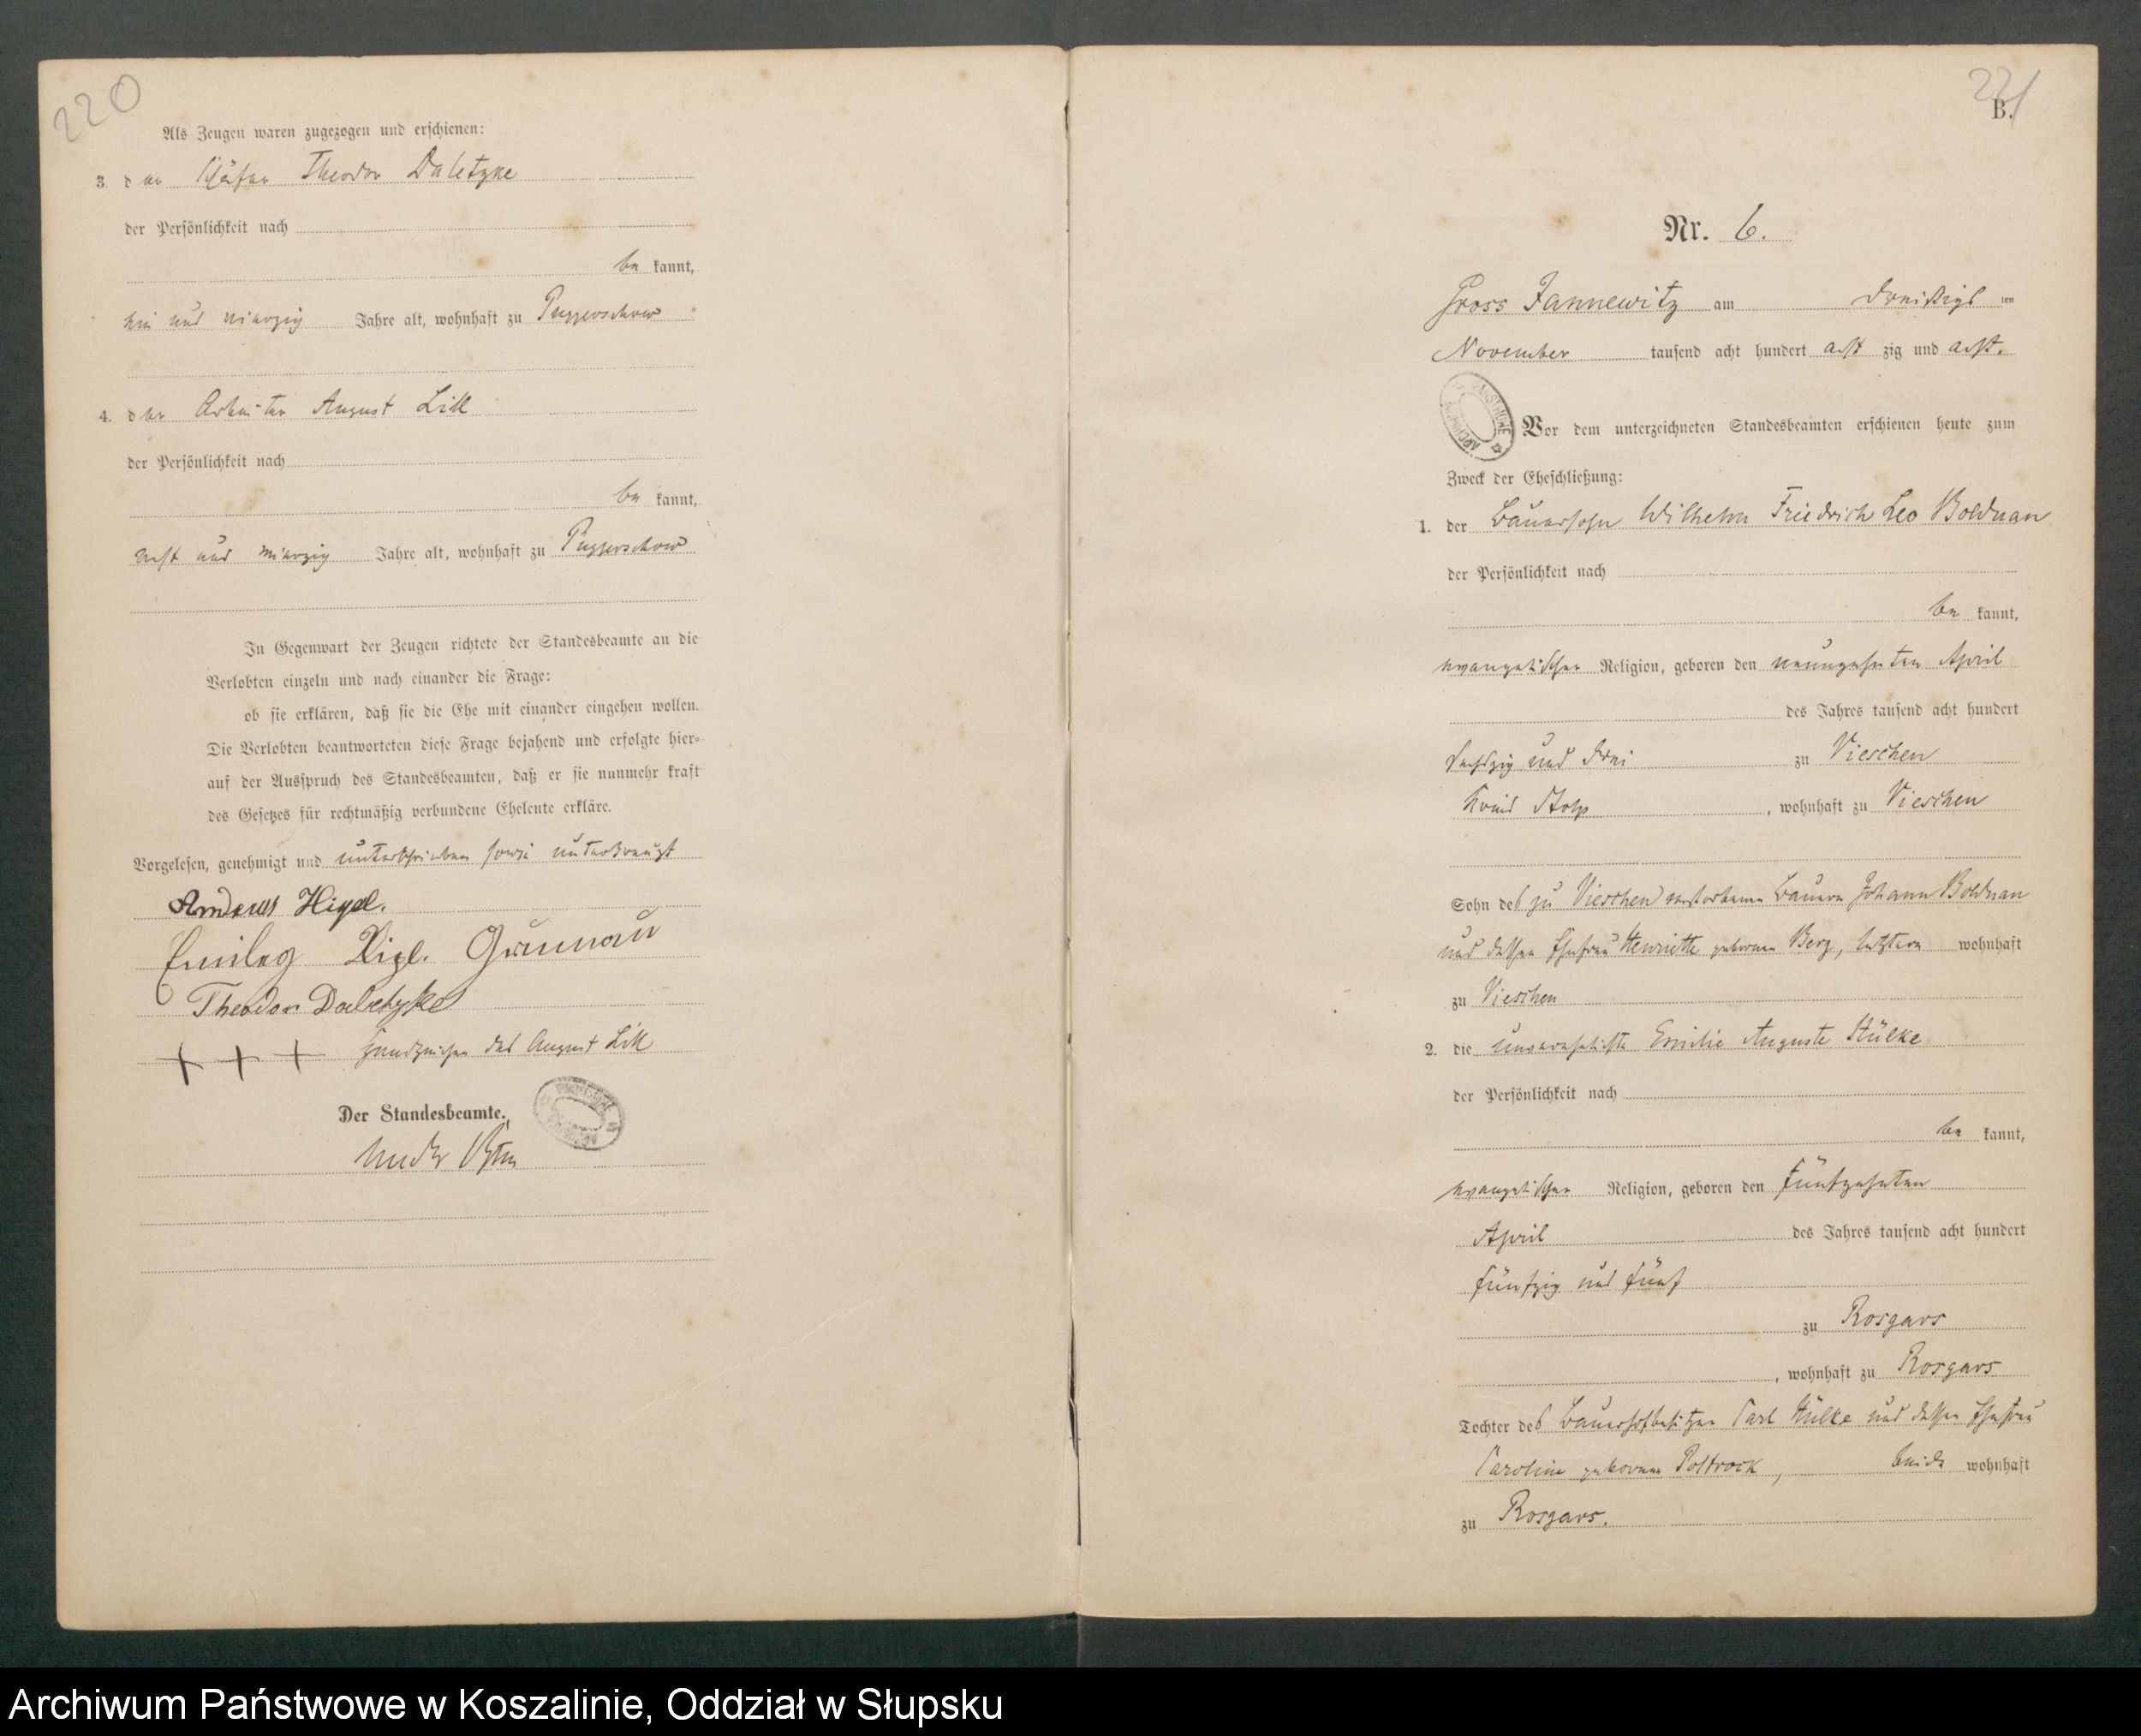 220
Als Zeugen waren zugezogen und erschienen:
3. der Schäfer Theodor Daletzke
der Persönlichkeit nach
be kannt,
ein und vierzig Jahre alt, wohnhaft zu Puggerschow
4. der Arbeiter August Lill
der Persönlichkeit nach
be kannt,
acht und vierzig Jahre alt, wohnhaft zu Puggerschow
In Gegenwart der Zeugen richtete der Standesbeamte an die
Verlobten einzeln und nach einander die Frage:
ob sie erklären, daß sie die Ehe mit einander eingehen wollen.
Die Verlobten beantworteten diese Frage bejahend und erfolgte hier-
auf der Ausspruch des Standesbeamten, daß er sie nunmehr kraft
des Gesetzes für rechtmäßig verbundene Eheleute erkläre.
Vorgelesen, genehmigt und unterschrieben sowie unterkreuzt
Higel.
Grunau
Theodor Daletzke
+ + + Handzeichen des August Lill
Der Standesbeamte.
221
B.
Nr. 6.
Gross Jannewitz am dreißigsten
November tausend acht hundert acht zig und acht.
Vor dem unterzeichneten Standesbeamten erschienen heute zum
Zweck der Eheschließung:
1. der Bauersohn Wilhelm Friedrich Leo Bolduan
der Persönlichkeit nach
be kannt,
evangelischer Religion, geboren den neunzehnten April
des Jahres tausend acht hundert
sechszig und drei zu Vieschen
Kreis Stolp, wohnhaft zu Vieschen
Sohn des zu Vieschen verstorbenen Bauern Johann Bolduan
und dessen Ehefrau Henriette geborenen Berg, letztere wohnhaft
zu Vieschen
2. die unverehelichte Emilie Auguste Stülke
der Persönlichkeit nach
be kannt,
evangelischer Religion, geboren den fünfzehnten
April des Jahres tausend acht hundert
fünfzig und fünf
zu Rosgars
, wohnhaft zu Rosgars
Tochter des Bauerhofbesitzer Carl Stülke und dessen Ehefrau
Caroline geborenen Poltrock, beide wohnhaft
zu Rosgars.
Archiwum Państwowe w Koszalinie, Oddział w Słupsku